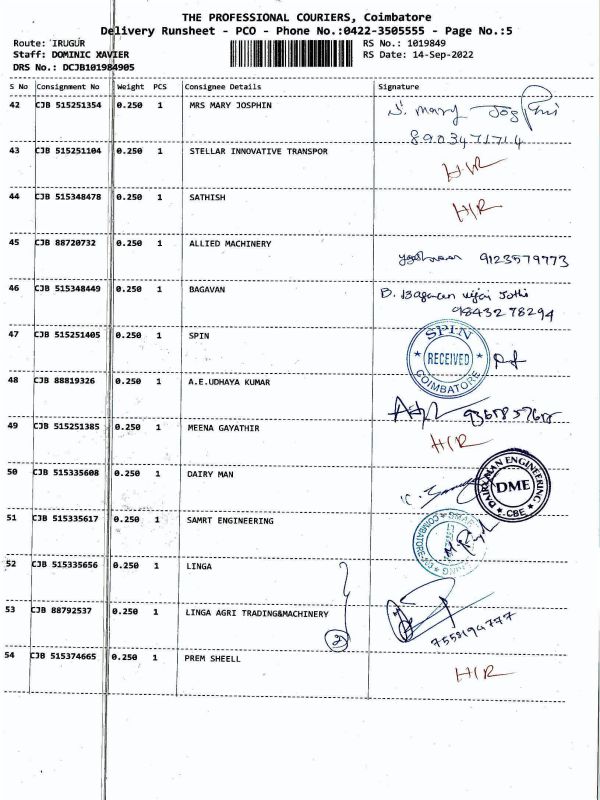 THE PROFESSIONAL COURIERS, Coimbatore
Delivery Runsheet - PCO - Phone No.:0422-3505555 - Page No.:5
Route: IRUGUR RS No.: 1019849
Staff: DOMINIC XAVIER RS Date: 14-Sep-2022
DRS No.: DCJB101984905
S No Consignment No Weight PCS Consignee Details Signature
42 CJB 515251354 0.250 1 MRS MARY JOSPHIN S. Mary Josphin
8903471714
43 CJB 515251104 0.250 1 STELLAR INNOVATIVE TRANSPOR H/R
44 CJB 515348478 0.250 1 SATHISH H/R
45 CJB 88720732 0.250 1 ALLIED MACHINERY 9123579773
46 CJB 515348449 0.250 1 BAGAVAN B. Bagavan
9843278294
47 CJB 515251405 0.250 1 SPIN SPIN RECEIVED COIMBATORE
48 CJB 88819326 0.250 1 A.E.UDHAYA KUMAR
49 CJB 515251385 0.250 1 MEENA GAYATHIR H/R
50 CJB 515335608 0.250 1 DAIRY MAN DAIRYMAN ENGINEERING DME CBE
51 CJB 515335617 0.250 1 SAMRT ENGINEERING
52 CJB 515335656 0.250 1 LINGA
53 CJB 88792537 0.250 1 LINGA AGRI TRADING&MACHINERY 2 7558194777
54 CJB 515374665 0.250 1 PREM SHEELL H/R